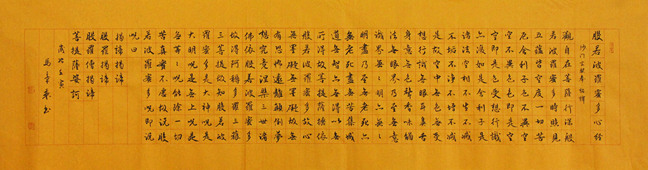 般若波羅蜜多心經
沙門玄奘奉詔譯
觀自在菩薩行深般
若波羅蜜多時照見
五蘊皆空度一切苦
厄舍利子色不異空
空不異色色即是空
空即是色受想行識
亦復如是舍利子是
諸法空相不生不滅
不垢不淨不增不減
是故空中無色無受
想行識無眼耳鼻舌
身意無色聲香味觸
法無眼界乃至無意
識界無無明亦無無
明盡乃至無老死亦
無老死盡無苦集滅
道無智亦無得以無
所得故菩提薩埵依
般若波羅蜜多故心
無罣礙無罣礙故無
有恐怖遠離顛倒夢
想究竟涅槃三世諸
佛依般若波羅蜜多
故得阿耨多羅三藐
三菩提故知般若波
羅蜜多是大神咒是
大明咒是無上咒是
無等等咒能除一切
苦真實不虛故說般
若波羅蜜多咒即說
咒曰
揭諦揭諦
般羅揭諦
般羅僧揭諦
菩提薩婆訶
歲次壬寅